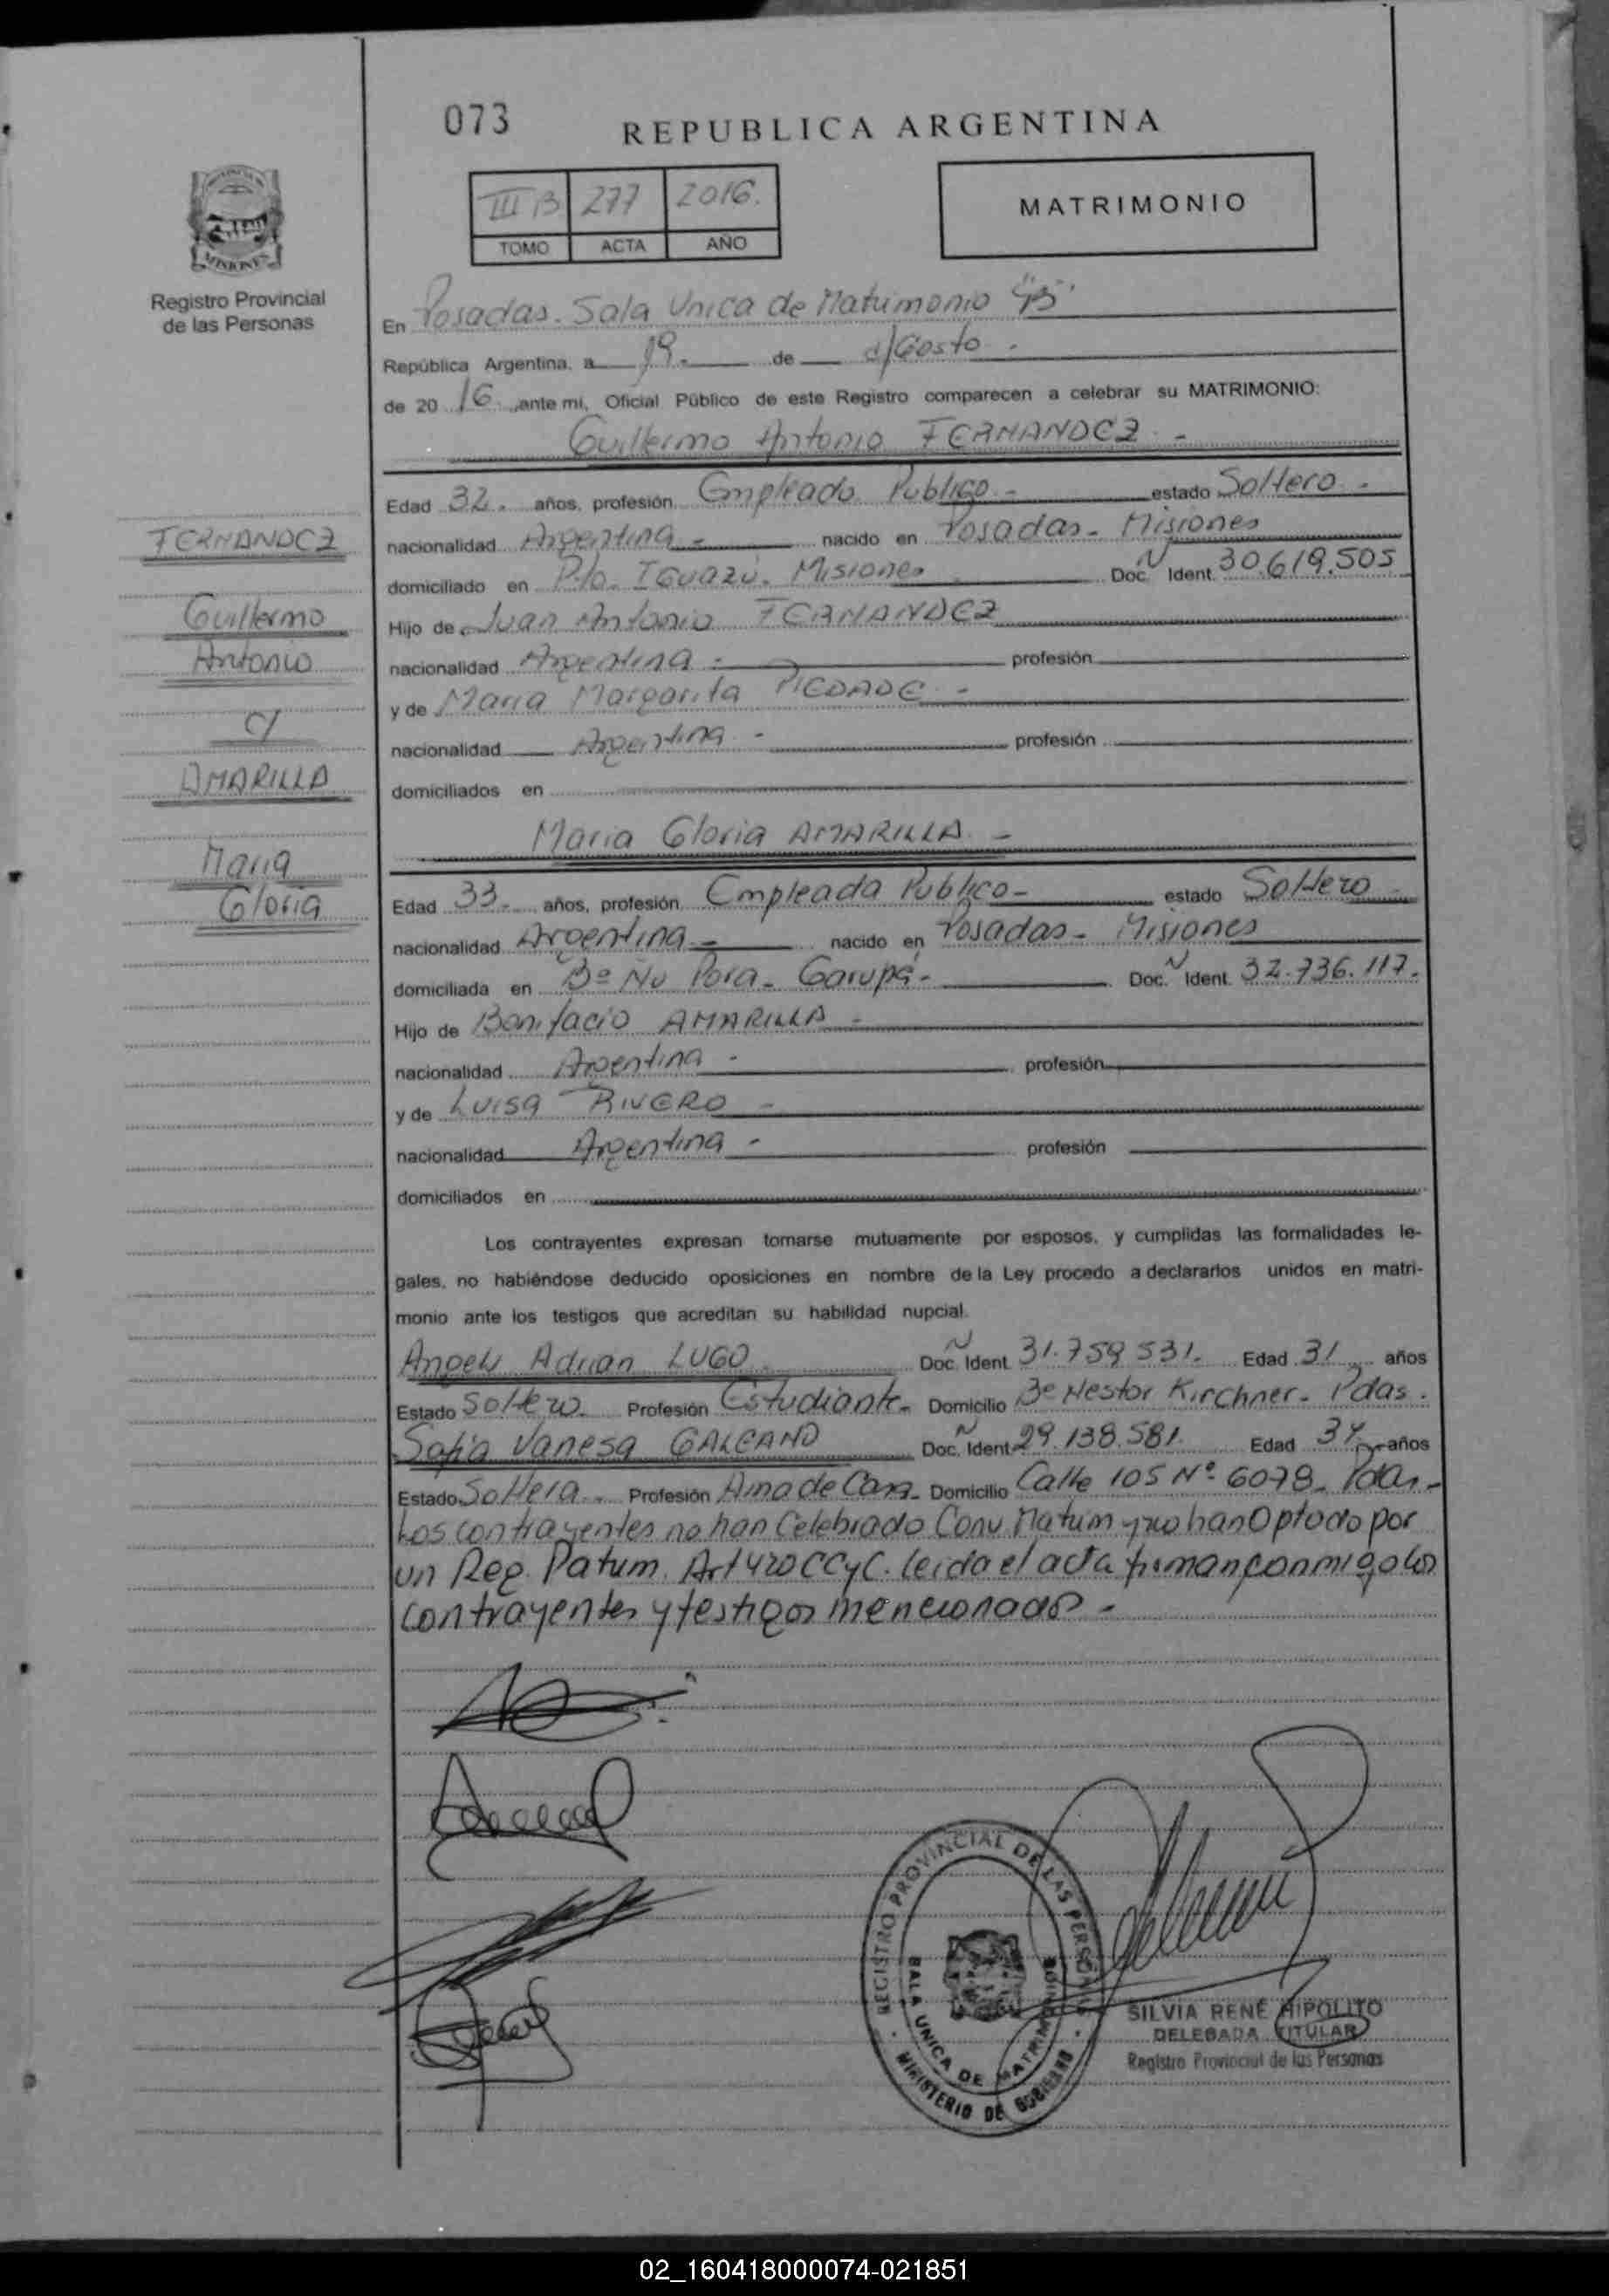 073
REPUBLICA ARGENTINA
III B 277 2016.
TOMO ACTA AÑO
MATRIMONIO
MISIONES
Registro Provincial
de las Personas
En Posadas. Sala Unica de Matrimonio
República Argentina, a 19. de Agosto -
de 20 16 ,ante mi, Oficial Público de este Registro comparecen a celebrar su MATRIMONIO:
Guillermo Antonio FERNANDEZ -
Edad 32. años, profesión Empleado Publico - estado Soltero -
nacionalidad Argentina - nacido en Posadas - Misiones
domiciliado en Pto. IGUAZU. Misiones Doc. Ident. 30.619.505
Hijo de Juan Antonio FERNANDEZ
nacionalidad Argentina - profesión
y de Maria Margarita PIEDADE -
nacionalidad Argentina - profesión
domiciliados en
FERNANDEZ
Guillermo
Antonio
C/
AMARILLA
Maria
Gloria
Maria Gloria AMARILLA -
Edad 33. años, profesión Empleada Publico - estado Soltero
nacionalidad Argentina - nacido en Posadas - Misiones
domiciliada en Bº Ñu Pora - Garupá - Doc. Ident. 32.736.117.
Hijo de Bonifacio AMARILLA -
nacionalidad Argentina - profesión
y de Luisa RIVERO -
nacionalidad Argentina - profesión
domiciliados en
Los contrayentes expresan tomarse mutuamente por esposos, y cumplidas las formalidades le-
gales, no habiéndose deducido oposiciones en nombre de la Ley procedo a declararlos unidos en matri-
monio ante los testigos que acreditan su habilidad nupcial.
Adrian LUGO Doc. Ident. 31.759.531. Edad 31 años
Estado Soltero. Profesión Estudiante - Domicilio Bº Nestor Kirchner - Pdas.
Sofia Vanesa GALEANO Doc. Ident. 29.138.581. Edad 34 años
Estado Soltera. Profesión Ama de Casa - Domicilio Calle 105 Nº 6078 - Pdas -
Los contrayentes no han Celebrado Conv Matrim y no han Optado por
un Reg. Patrim. Art 420 CCyC. leida el acta firman conmigo los
contrayentes y testigos mencionados -
REGISTRO PROVINCIAL DE LAS PERSONAS
SALA UNICA DE MATRIMONIOS
MINISTERIO DE GOBIERNO
SILVIA RENÉ HIPOLITO
DELEGADA TITULAR
Registro Provincial de las Personas
02_160418000074-021851